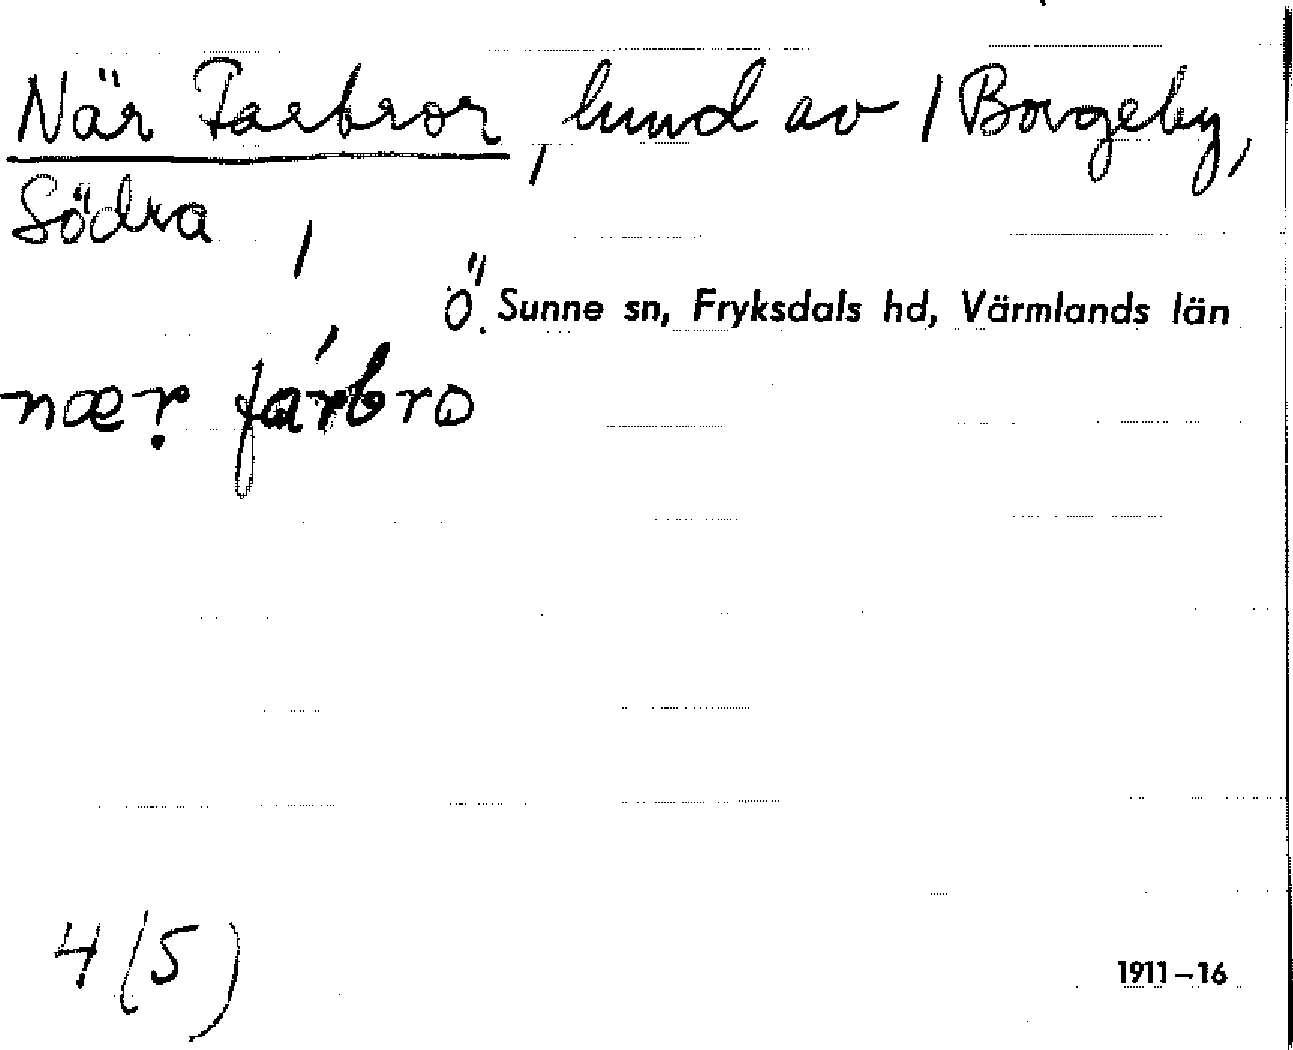 När Farbror, hund av / Borgeby,
Södra
Ö. Sunne sn, Fryksdals hd, Värmlands län
næṛ fárbro
4 (5)
1911–16